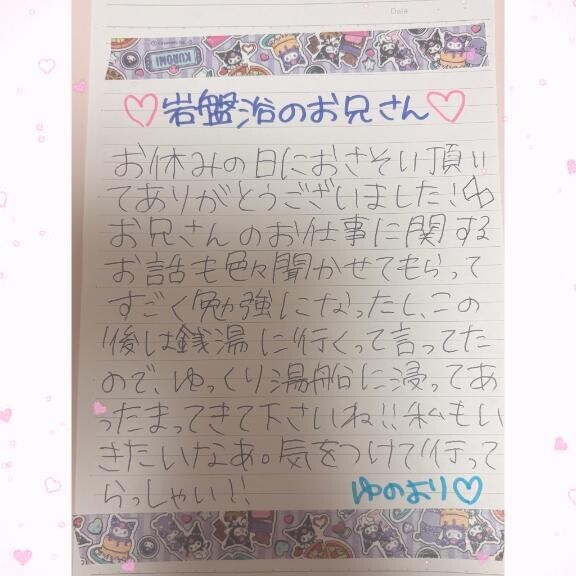 Date
KUROMI
♡岩盤浴のお兄さん♡
お休みの日におさそい頂い
てありがとうございました!
お兄さんのお仕事に関する
お話も色々聞かせてもらって
すごく勉強になったし、この
後は銭湯に行くって言ってた
ので、ゆっくり湯船に浸ってあ
ったまってきて下さいね!!私もい
きたいなあ。気をつけて行って
らっしゃい!!
ゆのより♡